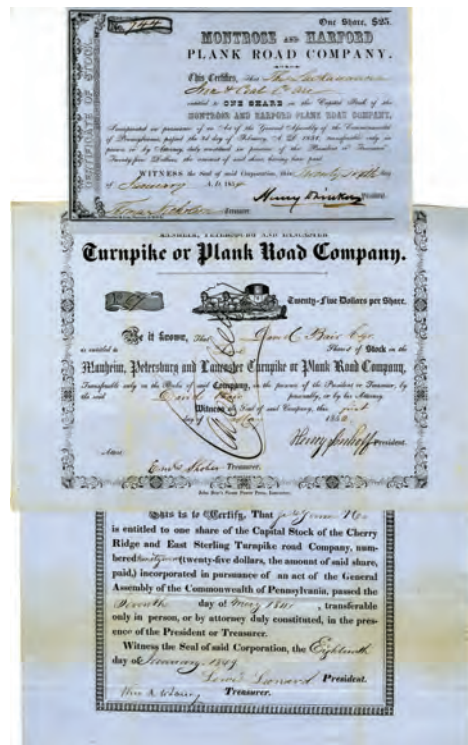 No. 144 One Share, $25.
CERTIFICATE OF STOCK
MONTROSE AND HARFORD
PLANK ROAD COMPANY.
This Certifies, That The Lackawanna
Iron & Coal Co are
entitled to ONE SHARE in the Capital Stock of the
MONTROSE AND HARFORD PLANK ROAD COMPANY,
Incorporated in pursuance of an Act of the General Assembly of the Commonwealth
of Pennsylvania, passed the day of February, A. D. 1851, transferable only in
person or by Attorney duly constituted in presence of the President or Treasurer
Twenty-five Dollars, the amount of said share having been paid.
WITNESS the Seal of said Corporation, this Twenty sixth day
of January A. D. 1854
Henry Drinker President.
Treasurer.
MANHEIM, PETERSBURG AND LANCASTER
Turnpike or Plank Road Company.
Twenty-Five Dollars per Share.
Be it known, That David Bair Esqr
is entitled to Shares of Stock in the
Manheim, Petersburg and Lancaster Turnpike or Plank Road Company,
Transferable only on the Books of said Company, in the presence of the President or Treasurer, by
the said David Bair personally, or by his Attorney.
Witness the Seal of said Company, this first
day of 185
Henry Imhoff President.
Attest
Treasurer.
John Bear's Power Press Print, Lancaster.
This is to Certify, That
is entitled to one share of the Capital Stock of the Cherry
Ridge and East Sterling Turnpike road Company, num-
bered (twenty-five dollars, the amount of said share,
paid,) incorporated in pursuance of an act of the General
Assembly of the Commonwealth of Pennsylvania, passed the
Seventh day of May 1841, transferable
only in person, or by attorney duly constituted, in the pres-
ence of the President or Treasurer.
Witness the Seal of said Corporation, the Eighteenth
day of January 1849
Lewis Leonard President.
Treasurer.